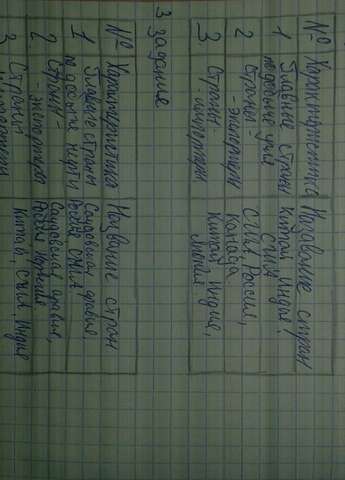 № Характеристика Название стран
1 Главные страны Китай, Индия,
по добыче угля США
2 Страны- США, Россия,
-экспортеры Канада
3 Страны- Китай, Индия,
-импортеры Япония
3 задание
№ Характеристика Название стран
1 Главные страны Саудовская аравия,
по добыче нефти Россия, США
2 Страны- Саудовская аравия,
-экспортеры Россия
3 Страны Китай, США, Индия
импортеры